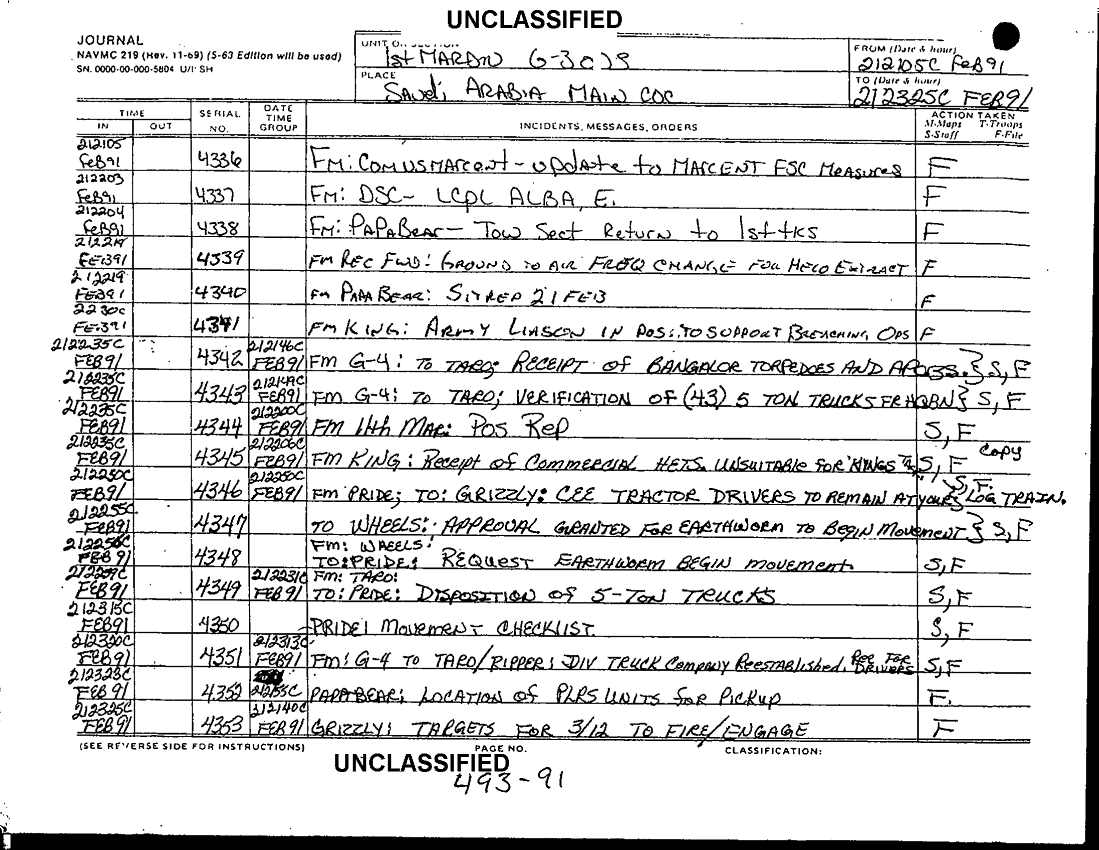 UNCLASSIFIED
JOURNAL
NAVMC 219 (Rev. 11-69) (5-63 Edition will be used)
SN. 0000-00-000-5804 U/I SH
UNIT OR SECTION
1st MARDIV G-3 OPS
PLACE
Saudi ARABIA MAIN COC
FROM (Date & hour)
212105C Feb91
TO (Date & hour)
212325C FEB91
TIME
IN OUT
SERIAL NO.
DATE TIME GROUP
INCIDENTS, MESSAGES, ORDERS
ACTION TAKEN
M-Maps T-Troops
S-Staff F-File
212105 FeB91 4336 Fm: COMUSMARCENT - update to MARCENT FSC Measures F
212203 FeB91 4337 Fm: DSC- LCpL ALBA, E. F
212204 FeB91 4338 Fm: PAPABear- Tow Sect Return to 1st tks F
FEB91 4339 Fm Rec Fwd: GROUND TO AIR FREQ CHANGE FOR HELO EXTRACT F
212219 FEB91 4340 Fm PAPA BEAR: SITREP 21 FEB F
2230C FEB91 4341 Fm KING: ARMY LIASON IN POS: TO SUPPORT BREACHING OPS F
212235C FEB91 4342 212146C FEB91 Fm G-4: TO TARO; RECEIPT OF BANGALOR TORPEDOES AND APOBS. } S, F
212235C FEB91 4343 FEB91 Fm G-4: TO TARO; VERIFICATION OF (43) 5 TON TRUCKS FR HQBN } S, F
212235C FEB91 4344 212200C FEB91 Fm 11th MAR: Pos Rep S, F
212235C FEB91 4345 212206C FEB91 Fm KING: Receipt of Commercial HETS. UNSUITABLE FOR KINGS S, F copy
212250C FEB91 4346 212250C FEB91 Fm PRIDE; TO: GRIZZLY: CEE TRACTOR DRIVERS TO REMAIN AT YOURS LOG TRAIN. S, F.
212255C FEB91 4347 TO WHEELS: APPROVAL GRANTED FOR EARTHWORM TO BEGIN MOVEMENT } S, F
212256C FEB 91 4348 Fm: WHEELS: TO: PRIDE: REQUEST EARTHWORM BEGIN movement. S, F
212259C FEB91 4349 212231C FEB 91 Fm: TARO: TO: PRIDE: DISPOSITION OF 5-TON TRUCKS S, F
212315C FEB91 4350 PRIDE: MOVEMENT CHECKLIST. S, F
212320C FEB91 4351 212313C FEB91 Fm: G-4 TO TARO/RIPPER: DIV TRUCK Company Reestablished, Req FOR DRIVERS S, F
212323C FEB 91 4352 212155C PAPABEAR: LOCATION OF PLRS UNITS for Pickup F.
212325C FEB91 4353 212140C FEB91 GRIZZLY: TARGETS FOR 3/12 TO FIRE/ENGAGE F
(SEE REVERSE SIDE FOR INSTRUCTIONS) PAGE NO. CLASSIFICATION:
UNCLASSIFIED
493-91